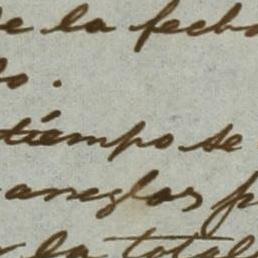 de la fecha
do.
tiempo se
arreglar p
la total